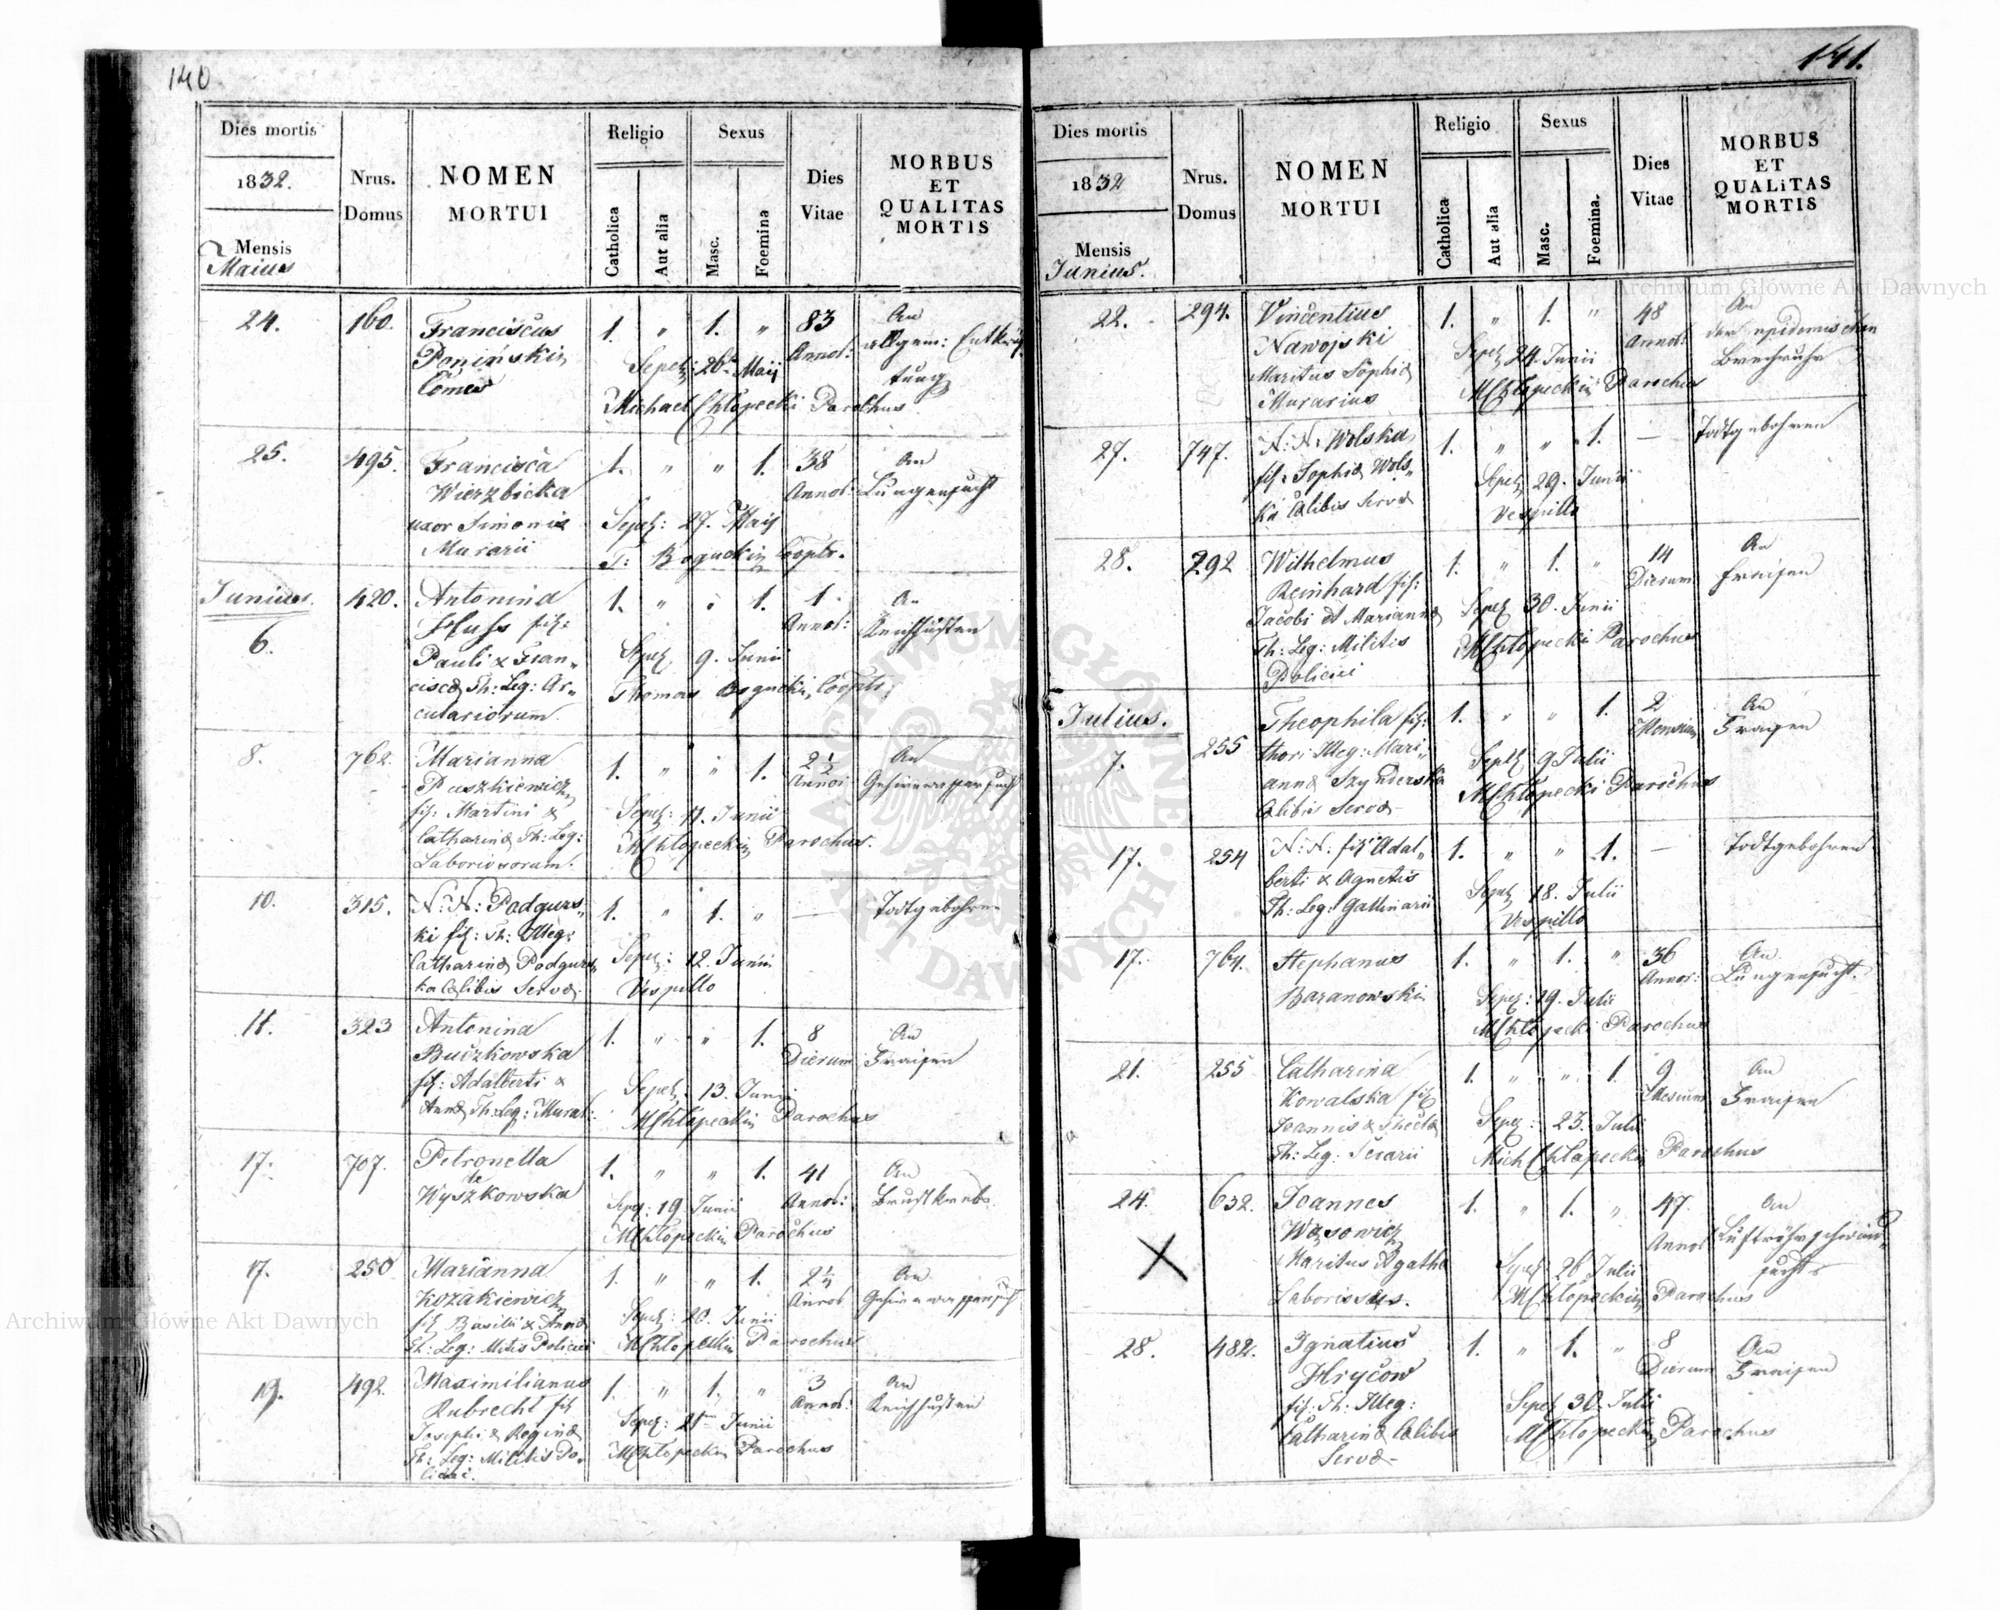 140
Dies mortis
1832.
Mensis
Maius
Nrus.
Domus
NOMEN
MORTUI
Religio
Catholica
Aut alia
Sexus
Masc.
Foemina
Dies
Vitae
MORBUS
ET
QUALITAS
MORTIS
24.
160.
Franciscus
Poniński
Comes
1. " 1. "
83
Annor:
An
allgem: Entkräf
tung
Sepel: 26 Maij
Michael Chłopecki Parochus
25.
495.
Francisca
Wierzbicka
uxor Simonis
Murarii
1. " " 1.
38
Annor:
An
Lungensucht
Sepel: 27. Maij
T: Bogucki Cooptr.
Junius.
6.
420.
Antonina
Huss fil:
Pauli & Fran„
ciscæ Th: Leg: Ar„
culariorum.
1. " " 1.
1
Annor:
An
Keichhusten
Sepel 9. Junii
Thomas Bogucki, Cooptr,
8.
762.
Marianna
Puszkiewicz
fil: Martini &
Catharinæ Th: Leg:
Laboriosorum.
1. " " 1.
2 1/2
Annor
An
Gehirnwassersucht
Sepel: 11. Junii
MChłopecki Parochus.
10.
315.
N: N: Podgurs„
ki fil: Th: Illeg:
Catharinæ Podgurs
ka Cælibis Servæ.
1. " 1. "
—
Todtgebohren
Sepel: 12. Junii
Vespillo
11.
323
Antonina
Buczkowska
fil: Adalberti &
Annæ Th: Leg: Murar:
1. " " 1.
8
Dierum
An
Fraisen
Sepel: 13. Junii
MChłopecki Parochus
17.
707.
Petronella
de
Wyszkowska
1. " " 1.
41
Annor:
An
Brustkrebs
Sepel: 19 Junii
MChłopecki Parochus
17.
250
Marianna
Kozakiewicz
fil Basilii & Annæ
Th: Leg: Militis Policiei
1. " " 1.
2 1/4
Annor
An
Gehirnwassersucht
Sepel: 20. Junii
MChłopecki Parochus
19.
492.
Maximilianus
Rubrecht fil
Josephi & Reginæ
Th: Leg: Militis Po„
liciei.
1. " 1. "
3
Annor:
An
Keichhusten
Sepel: 21 Junii
MChłopecki Parochus
141.
Dies mortis
1832
Mensis
Junius.
Nrus.
Domus
NOMEN
MORTUI
Religio
Catholica
Aut alia
Sexus
Masc.
Foemina.
Dies
Vitae
MORBUS
ET
QUALITAS
MORTIS
22.
294.
Vincentius
Nawojski
Maritus Sophiæ
Murarius
1. " 1. "
48
Annor:
An
der epidemischen
Brechruhr
Sepel 24. Junii
MChłopecki Parochus
27.
747.
N: N: Wolska
fil: Sophiæ Wols„
ka Cælibis Servæ
1. " " 1.
—
Todtgebohren
Sepel 29. Junii
Vespillo
28.
292
Wilhelmus
Reinhard fil:
Jacobi et Mariannæ
Th: Leg: Militis
Policiei
1. " 1. "
14
Dierum
An
Fraisen
Sepel 30. Junii
MChłopecki Parochus
Julius.
7.
255
Theophila fil:
thori Illeg: Mari„
annæ Szynderska
Cælibis Servæ
1. " " 1.
2
Mensium
An
Fraisen
Sepel 9 Julii
MChłopecki Parochus
17.
254
N: N: fil Adal„
berti & Agnetis
Th: Leg: Gallinarii
1. " " 1.
—
Todtgebohren
Sepel 18. Julii
Vespillo
17.
764.
Stephanus
Baranowski
1. " 1. "
36
Annor:
An
Lungensucht.
Sepel: 19. Julii
MChłopecki Parochus
21.
255
Catharina
Kowalska fil
Joannis & Theclæ
Th: Leg:
1. " " 1.
9
Mensium
An
Fraisen
Sepel: 23. Julii
Mich Chłopecki Parochus
24.
632.
Joannes
Wąsowicz
Maritus Agathæ
Laboriosus.
1. " 1. "
47
Annor
An
Luftröhrschwind„
sucht
Sepel: 26 Julii
MChłopecki Parochus
28.
482.
Ignatius
Hrycow
fil: Th: Illeg:
Catharinæ Cælibis
Servæ
1. " 1. "
8
Dierum
An
Fraisen
Sepel 30. Julii
MChłopecki Parochus
Archiwum Główne Akt Dawnych
Archiwum Główne Akt Dawnych
ARCHIWUM GŁÓWNE AKT DAWNYCH